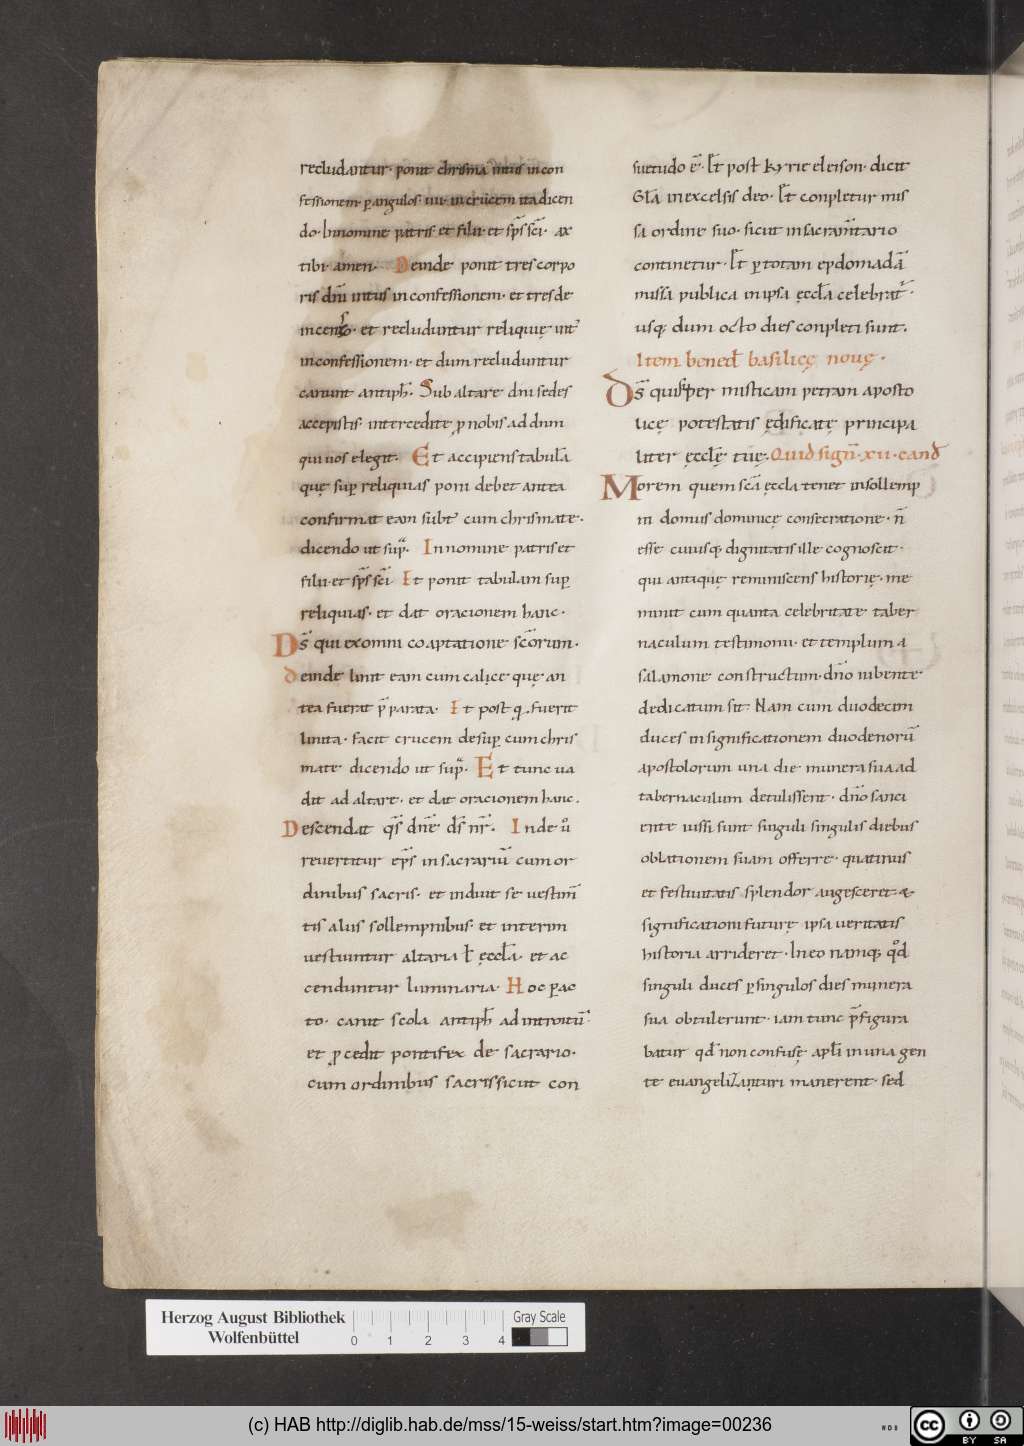 recludantur· ponit chrisma intus in con
fessionem· ꝑ angulos· iiii· in crucem ita dicen
do· In nomine patris· et filii· et sp̄s sc̄i· ax
tibi· amen· Deinde ponit tres corpo
ris dn̄i intus in confessionem· et tres de
incenso· et recluduntur reliquię int᷒
in confessionem· et dum recluduntur
canunt antiph̄· Sub altare dn̄i sedes
accepistis· intercedite ꝓ nobis ad dnm
qui uos elegit· Et accipiens tabulā
quę suꝑ reliquias poni debet antea
confirmat eam subt᷒ cum chrismate·
dicendo ut supͣ· In nomine patris et
filii· et sp̄s sc̄i Et ponit tabulam suꝑ
reliquias· et dat oracionem hanc·
Ds̄ qui ex omni coaptatione sc̄orum·
deinde linit eam cum calice quę an
tea fuerat p̄parata· Et post q· fuerit
linita· facit crucem desuꝑ cum chris
mate dicendo ut supͣ· Et tunc ua
dit ad altare· et dat oracionem hanc·
Descendat qs̄ dn̄e ds̄ nr̄· Inde ů
reuertitur ep̄s in sacrariū cum or
dinibus sacris· et induit se uestim̄
tis aliis sollempnibus· et interim
uestiuntur altaria ł ęccłа· et ac
cenduntur luminaria· Hoc ꝑac
to· canit scola antiph̄ ad introitū·
et ꝓcedit pontifex de sacrario·
cum ordinibus sacris sicut con
suetudo ē· Et post Kyrie eleison· dicit
Głа in excelsis deo· Et conpletur mis
sa ordine suo· sicut in sacram̄tario
continetur· Et ꝑ totam epdomadā
missa publica in ipsa ęccłа celebrat᷒·
usq; dum octo dies conpleti sunt.
Item bened̄ basilicę nouę·
Ds̄ qui sup̱er misticam petram aposto
licę potestatis ędificatę principa
liter ęccłę tuę· Quid sign̄· xii· cand̄
Morem quem sc̄a ęccla tenet in sollemp
ni domus dominicę consecratione· n̄
esse cuiusq; dignitatis ille cognoscit·
qui antiquę reminiscens historię· me
minit cum quanta celebritate taber
naculum testimonii· et templum a
salamone constructum· dn̄o iubente·
dedicatum sit· Nam cum duodecim
duces in significationem duodenorū
apostolorum una die munera sua ad
tabernaculum detulissent· dn̄o sanci
ente iussi sunt singuli singulis diebus
oblationem suam offerre· quatinus
et festiuitatis splendor augesceret· &
significationi futurę ipsa ueritatis
historia arrideret· In eo namq; qͦd
singuli duces ꝑ singulos dies munera
sua obtulerunt· iam tunc p̄figura
batur qd̄ non confusę apłi in una gen
te euangelizanturi manerent· sed
Herzog August Bibliothek
Wolfenbüttel
0 1 2 3 4
Gray Scale
(c) HAB http://diglib.hab.de/mss/15-weiss/start.htm?image=00236
cc BY SA